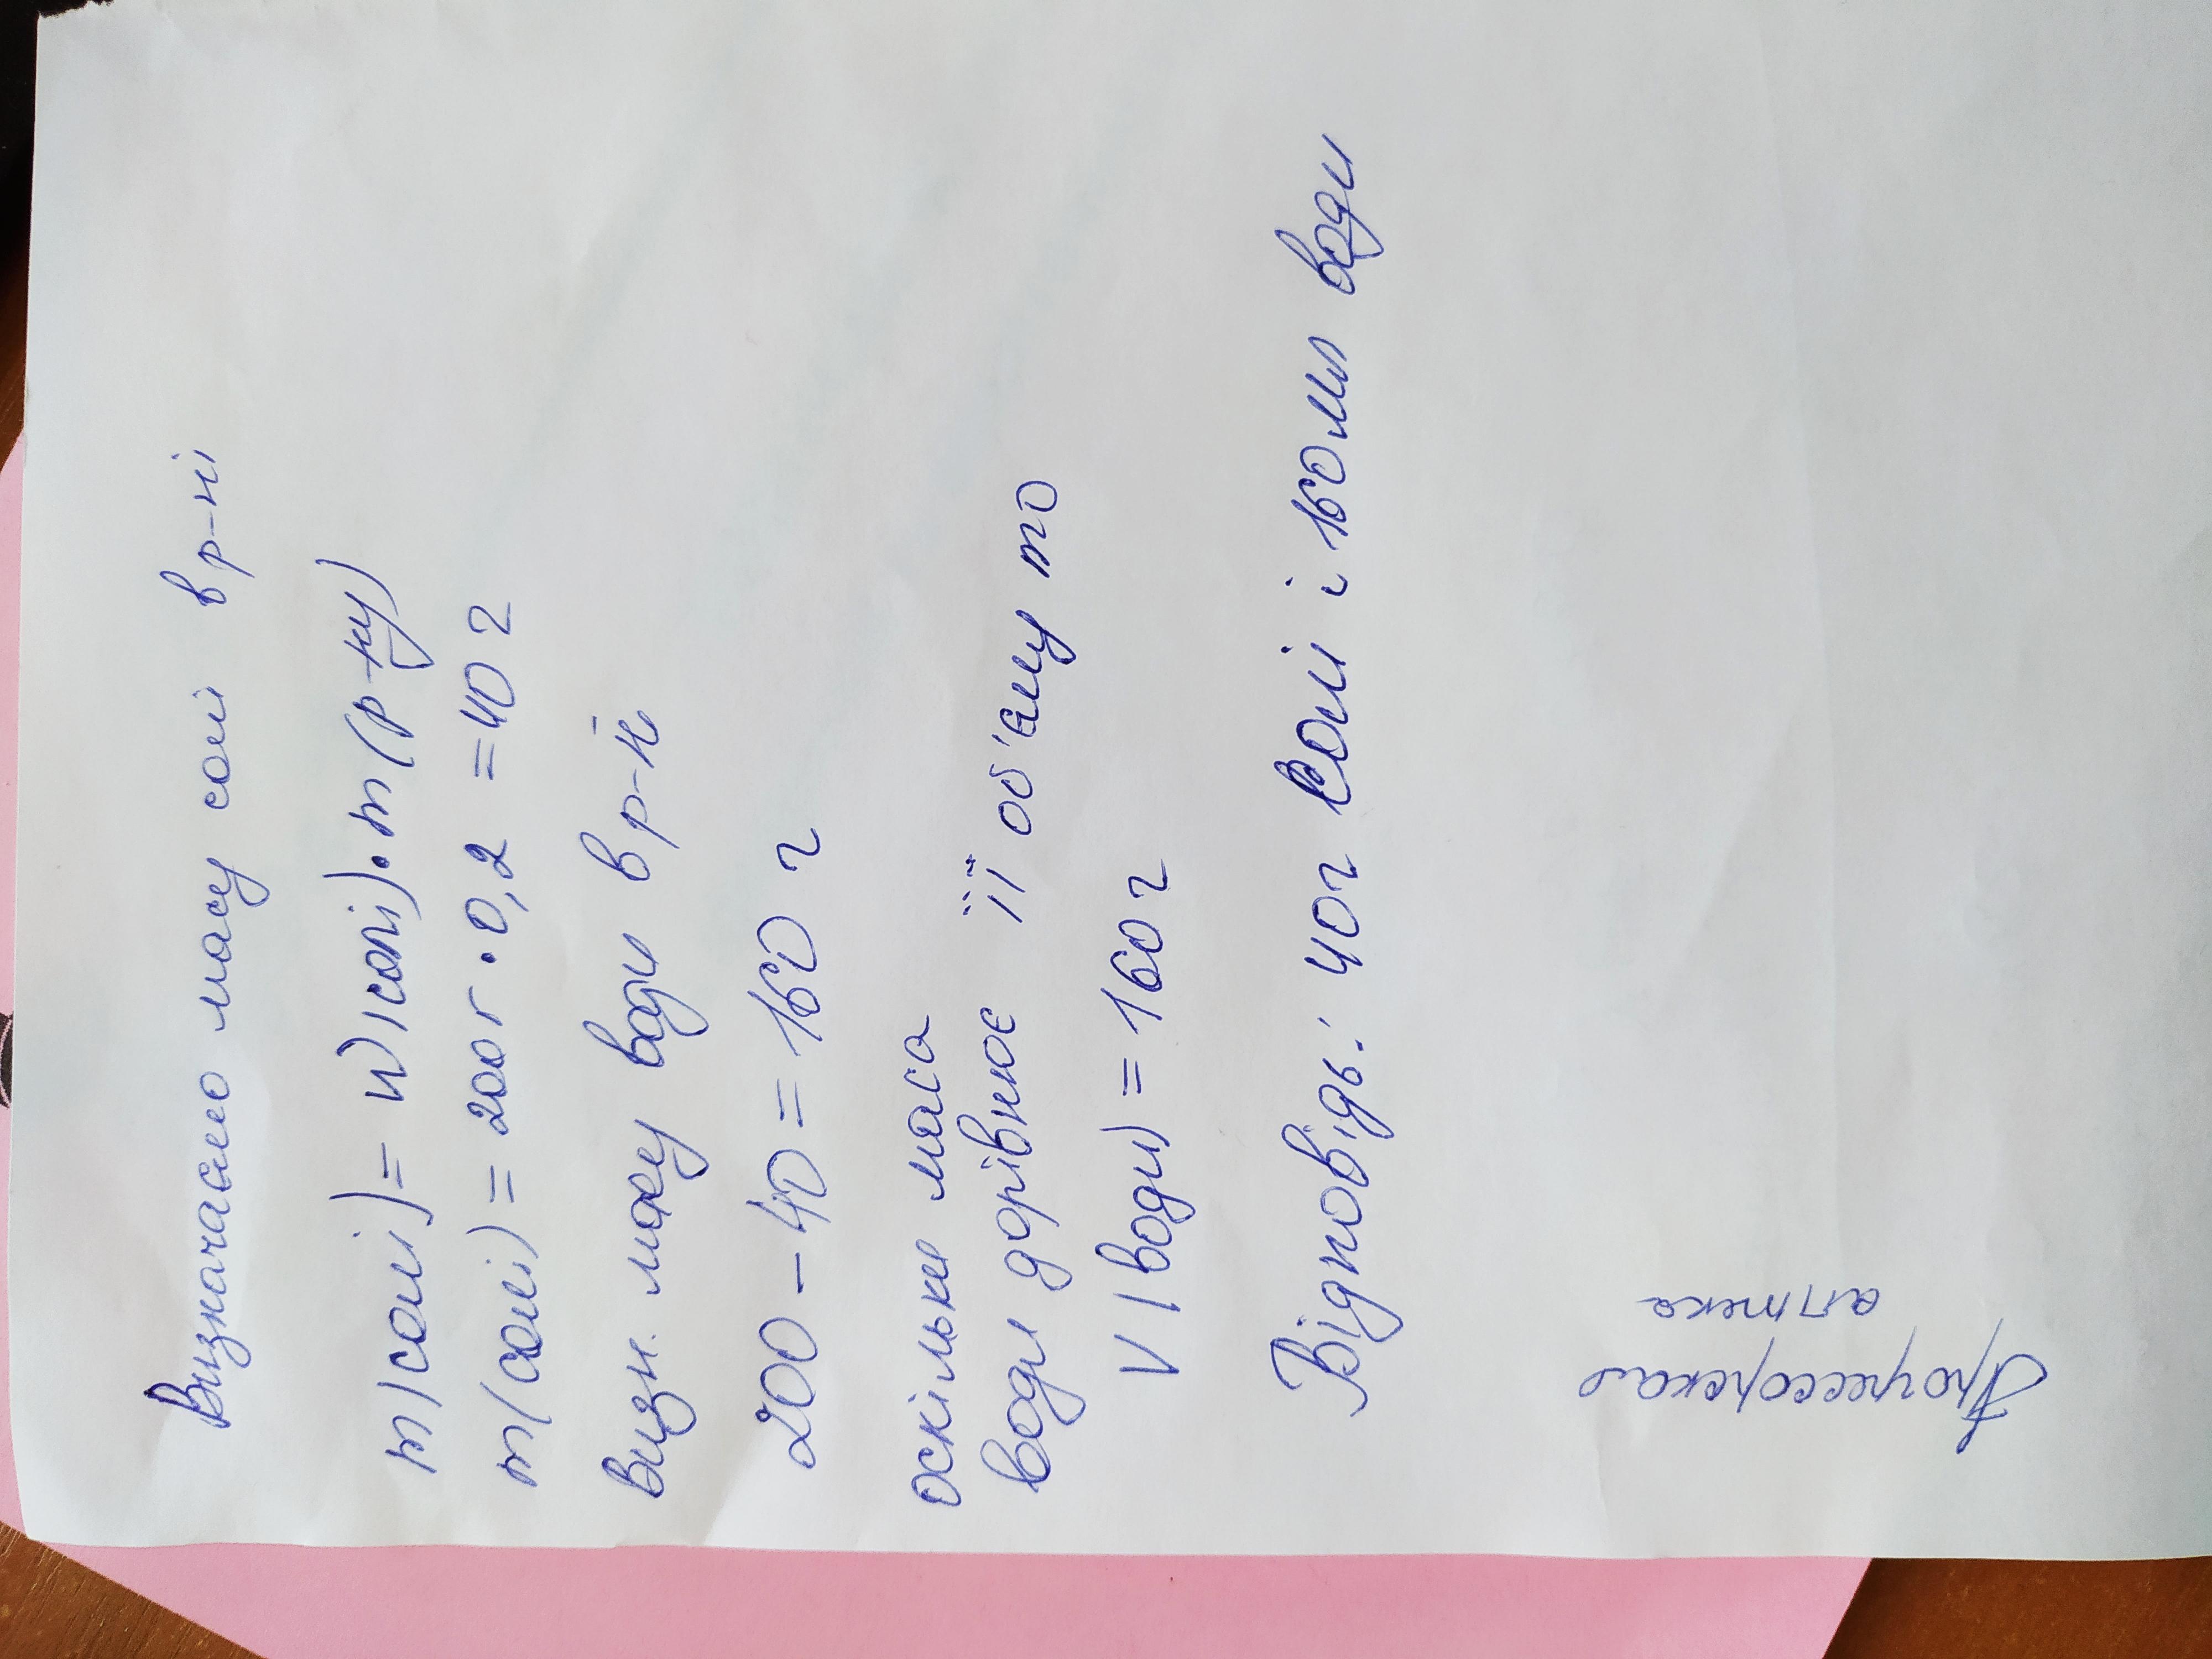 Визначаємо масу солі в р-ні
m(солі) = w(солі)·m(р-ну)
m(солі) = 200г·0,2 = 40 г
визн. масу води в р-ні
200 - 40 = 160 г
оскільки маса
води дорівнює її об'єму то
V(води) = 160 г
Відповідь: 40г солі і 160мл води
Профессорская
аптека